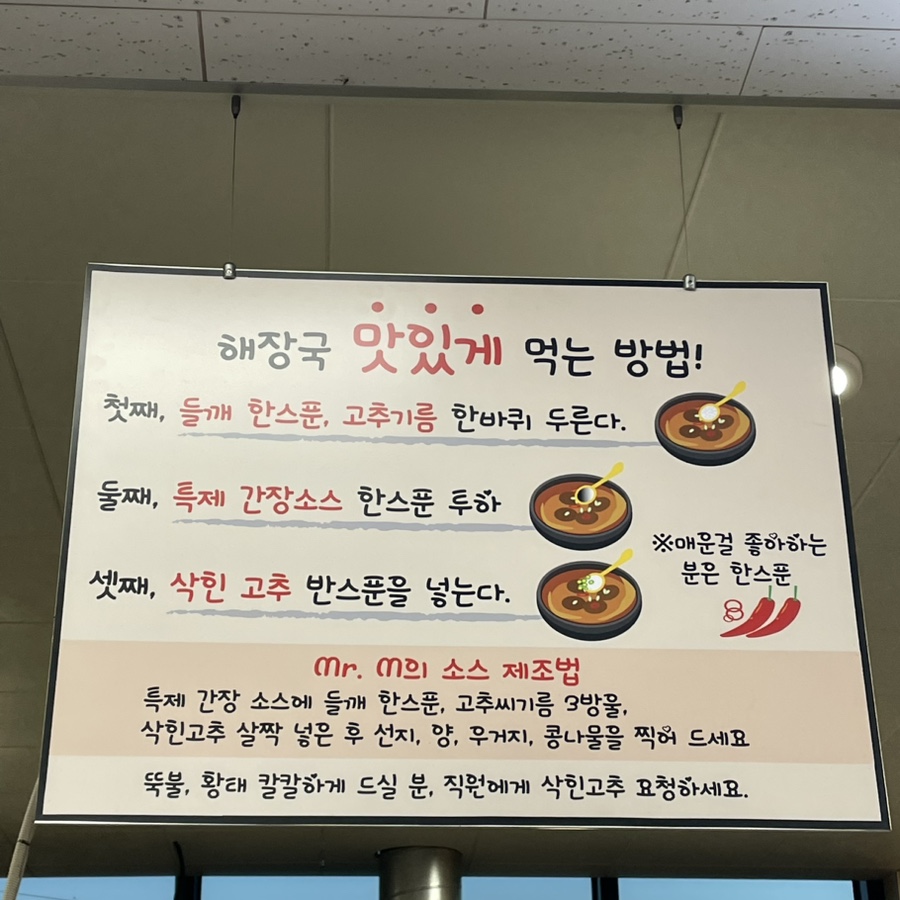 해장국 맛있게 먹는 방법!
첫째, 들깨 한스푼, 고추기름 한바퀴 두른다.
둘째, 특제 간장소스 한스푼 투하
※매운걸 좋아하는
분은 한스푼
셋째, 삭힌 고추 반스푼을 넣는다.
Mr. M의 소스 제조법
특제 간장 소스에 들깨 한스푼, 고추씨기름 3방울,
삭힌고추 살짝 넣은 후 선지, 양, 우거지, 콩나물을 찍어 드세요
뚝불, 황태 칼칼하게 드실 분, 직원에게 삭힌고추 요청하세요.